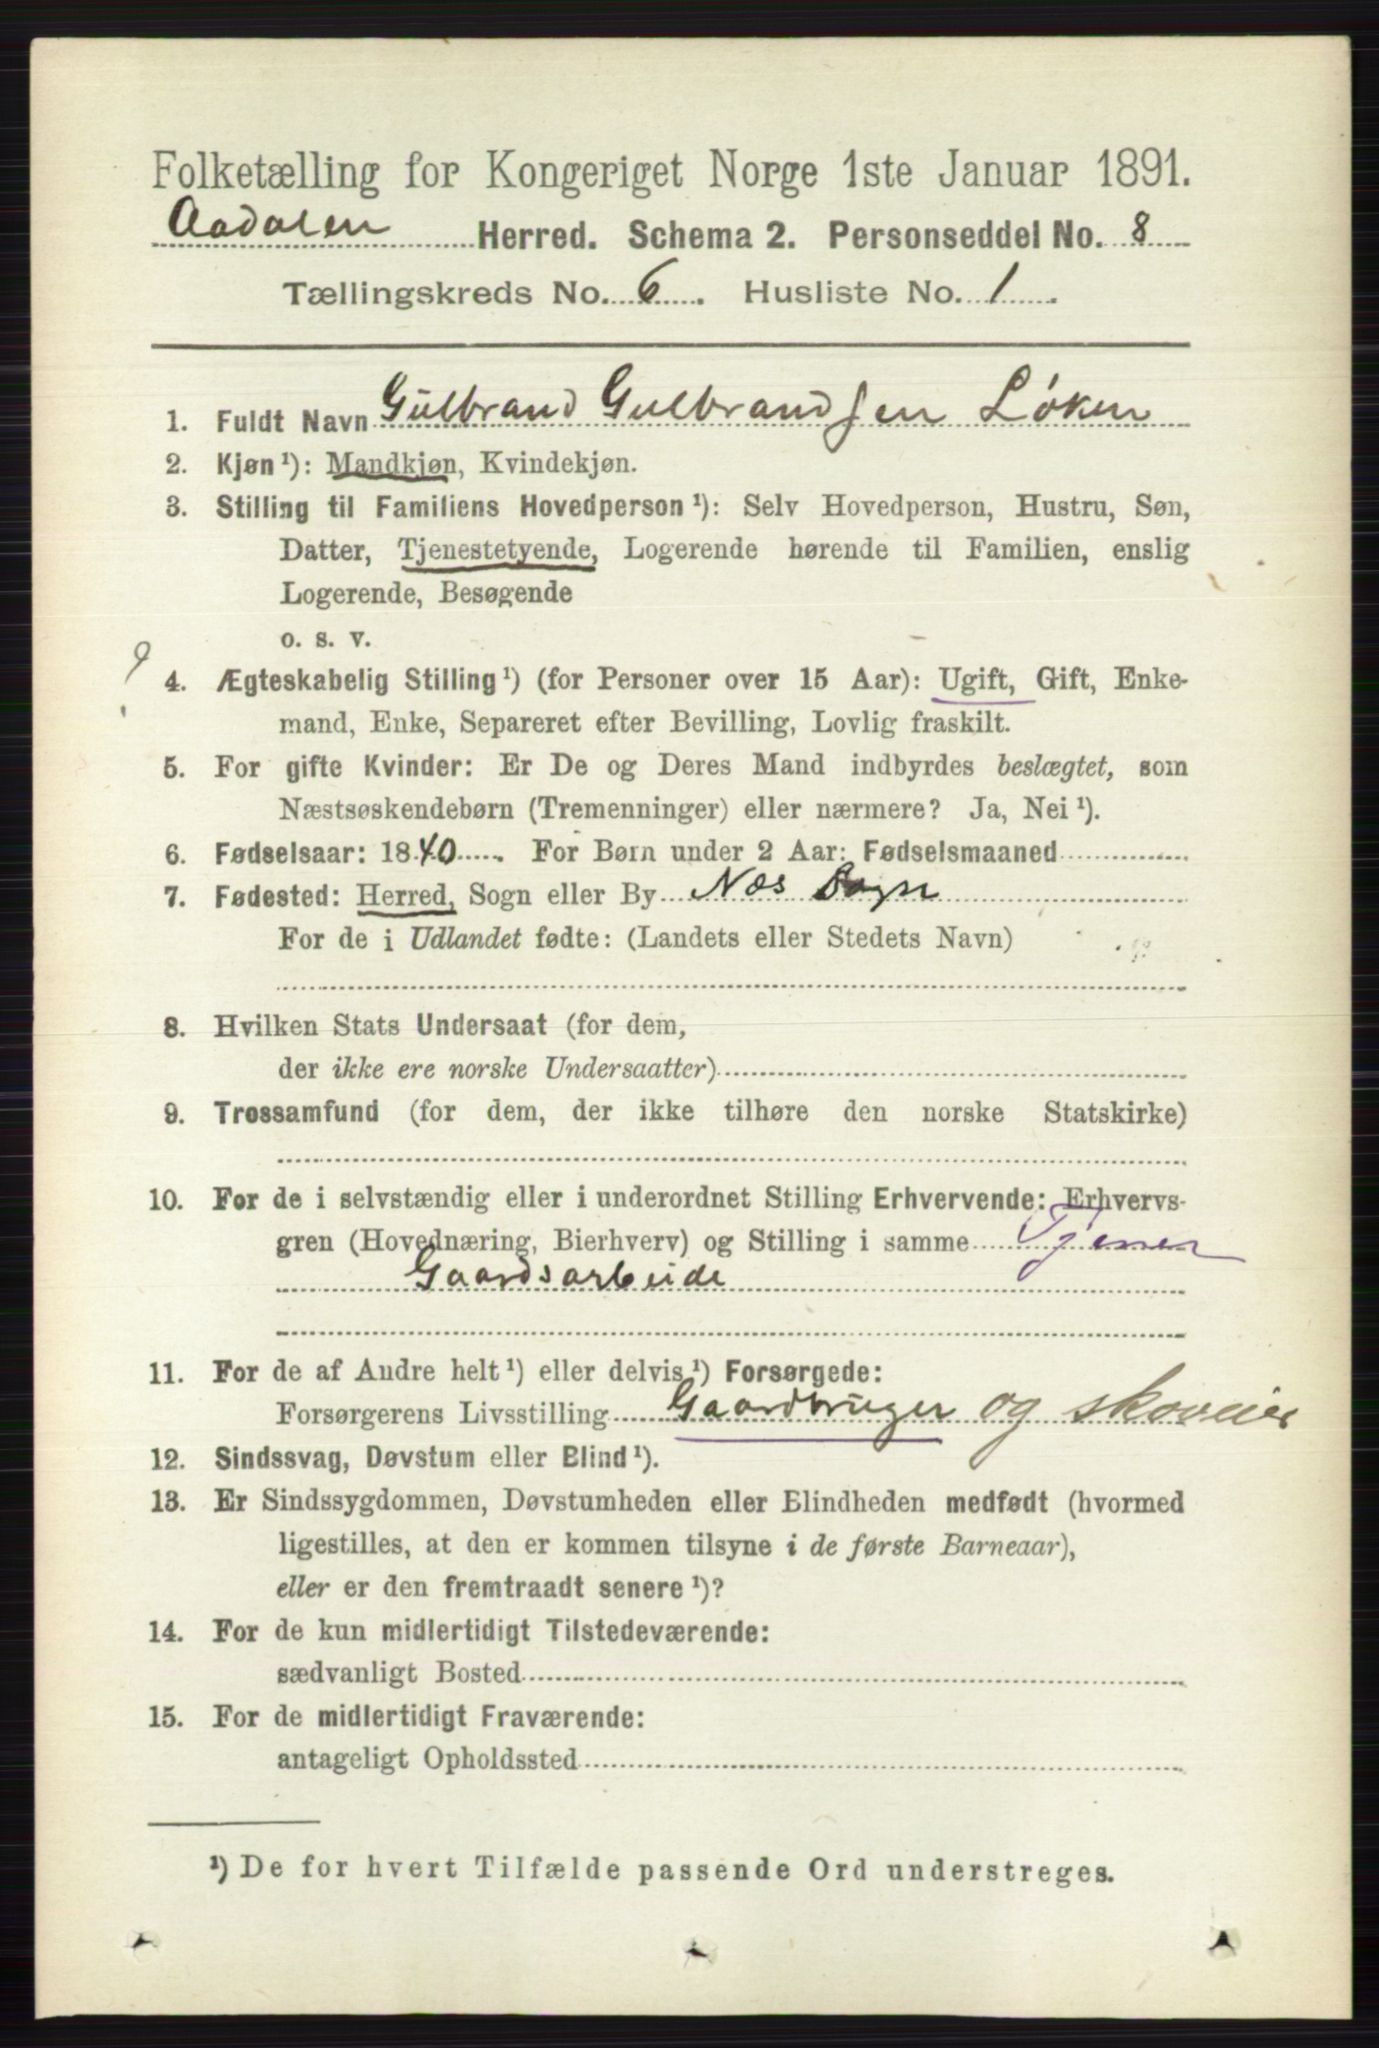 Folketælling for Kongeriget Norge 1ste Januar 1891.
Aadalen Herred. Schema 2. Personseddel No. 8
Tællingskreds No. 6. Husliste No. 1.
1. Fuldt Navn Gulbrand Gulbrandsen Løken
2. Kjøn ¹): Mandkjøn, Kvindekjøn.
3. Stilling til Familiens Hovedperson ¹): Selv Hovedperson, Hustru, Søn,
Datter, Tjenestetyende, Logerende hørende til Familien, enslig
Logerende, Besøgende
o. s. v.
9
4. Ægteskabelig Stilling ¹) (for Personer over 15 Aar): Ugift, Gift, Enke-
mand, Enke, Separeret efter Bevilling, Lovlig fraskilt.
5. For gifte Kvinder: Er De og Deres Mand indbyrdes beslægtet, som
Næstsøskendebørn (Tremenninger) eller nærmere? Ja, Nei ¹).
6. Fødselsaar: 1840. For Børn under 2 Aar: Fødselsmaaned
7. Fødested: Herred, Sogn eller By Næs Sogn
For de i Udlandet fødte: (Landets eller Stedets Navn)
8. Hvilken Stats Undersaat (for dem,
der ikke ere norske Undersaatter)
9. Trossamfund (for dem, der ikke tilhøre den norske Statskirke)
10. For de i selvstændig eller i underordnet Stilling Erhvervende: Erhvervs-
gren (Hovednæring, Bierhverv) og Stilling i samme Tjener
Gaardsarbeide
11. For de af Andre helt ¹) eller delvis ¹) Forsørgede:
Forsørgerens Livsstilling Gaardbruger og skoveier
12. Sindssvag, Døvstum eller Blind ¹).
13. Er Sindssygdommen, Døvstumheden eller Blindheden medfødt (hvormed
ligestilles, at den er kommen tilsyne i de første Barneaar),
eller er den fremtraadt senere ¹)?
14. For de kun midlertidigt Tilstedeværende:
sædvanligt Bosted
15. For de midlertidigt Fraværende:
antageligt Opholdssted
¹) De for hvert Tilfælde passende Ord understreges.